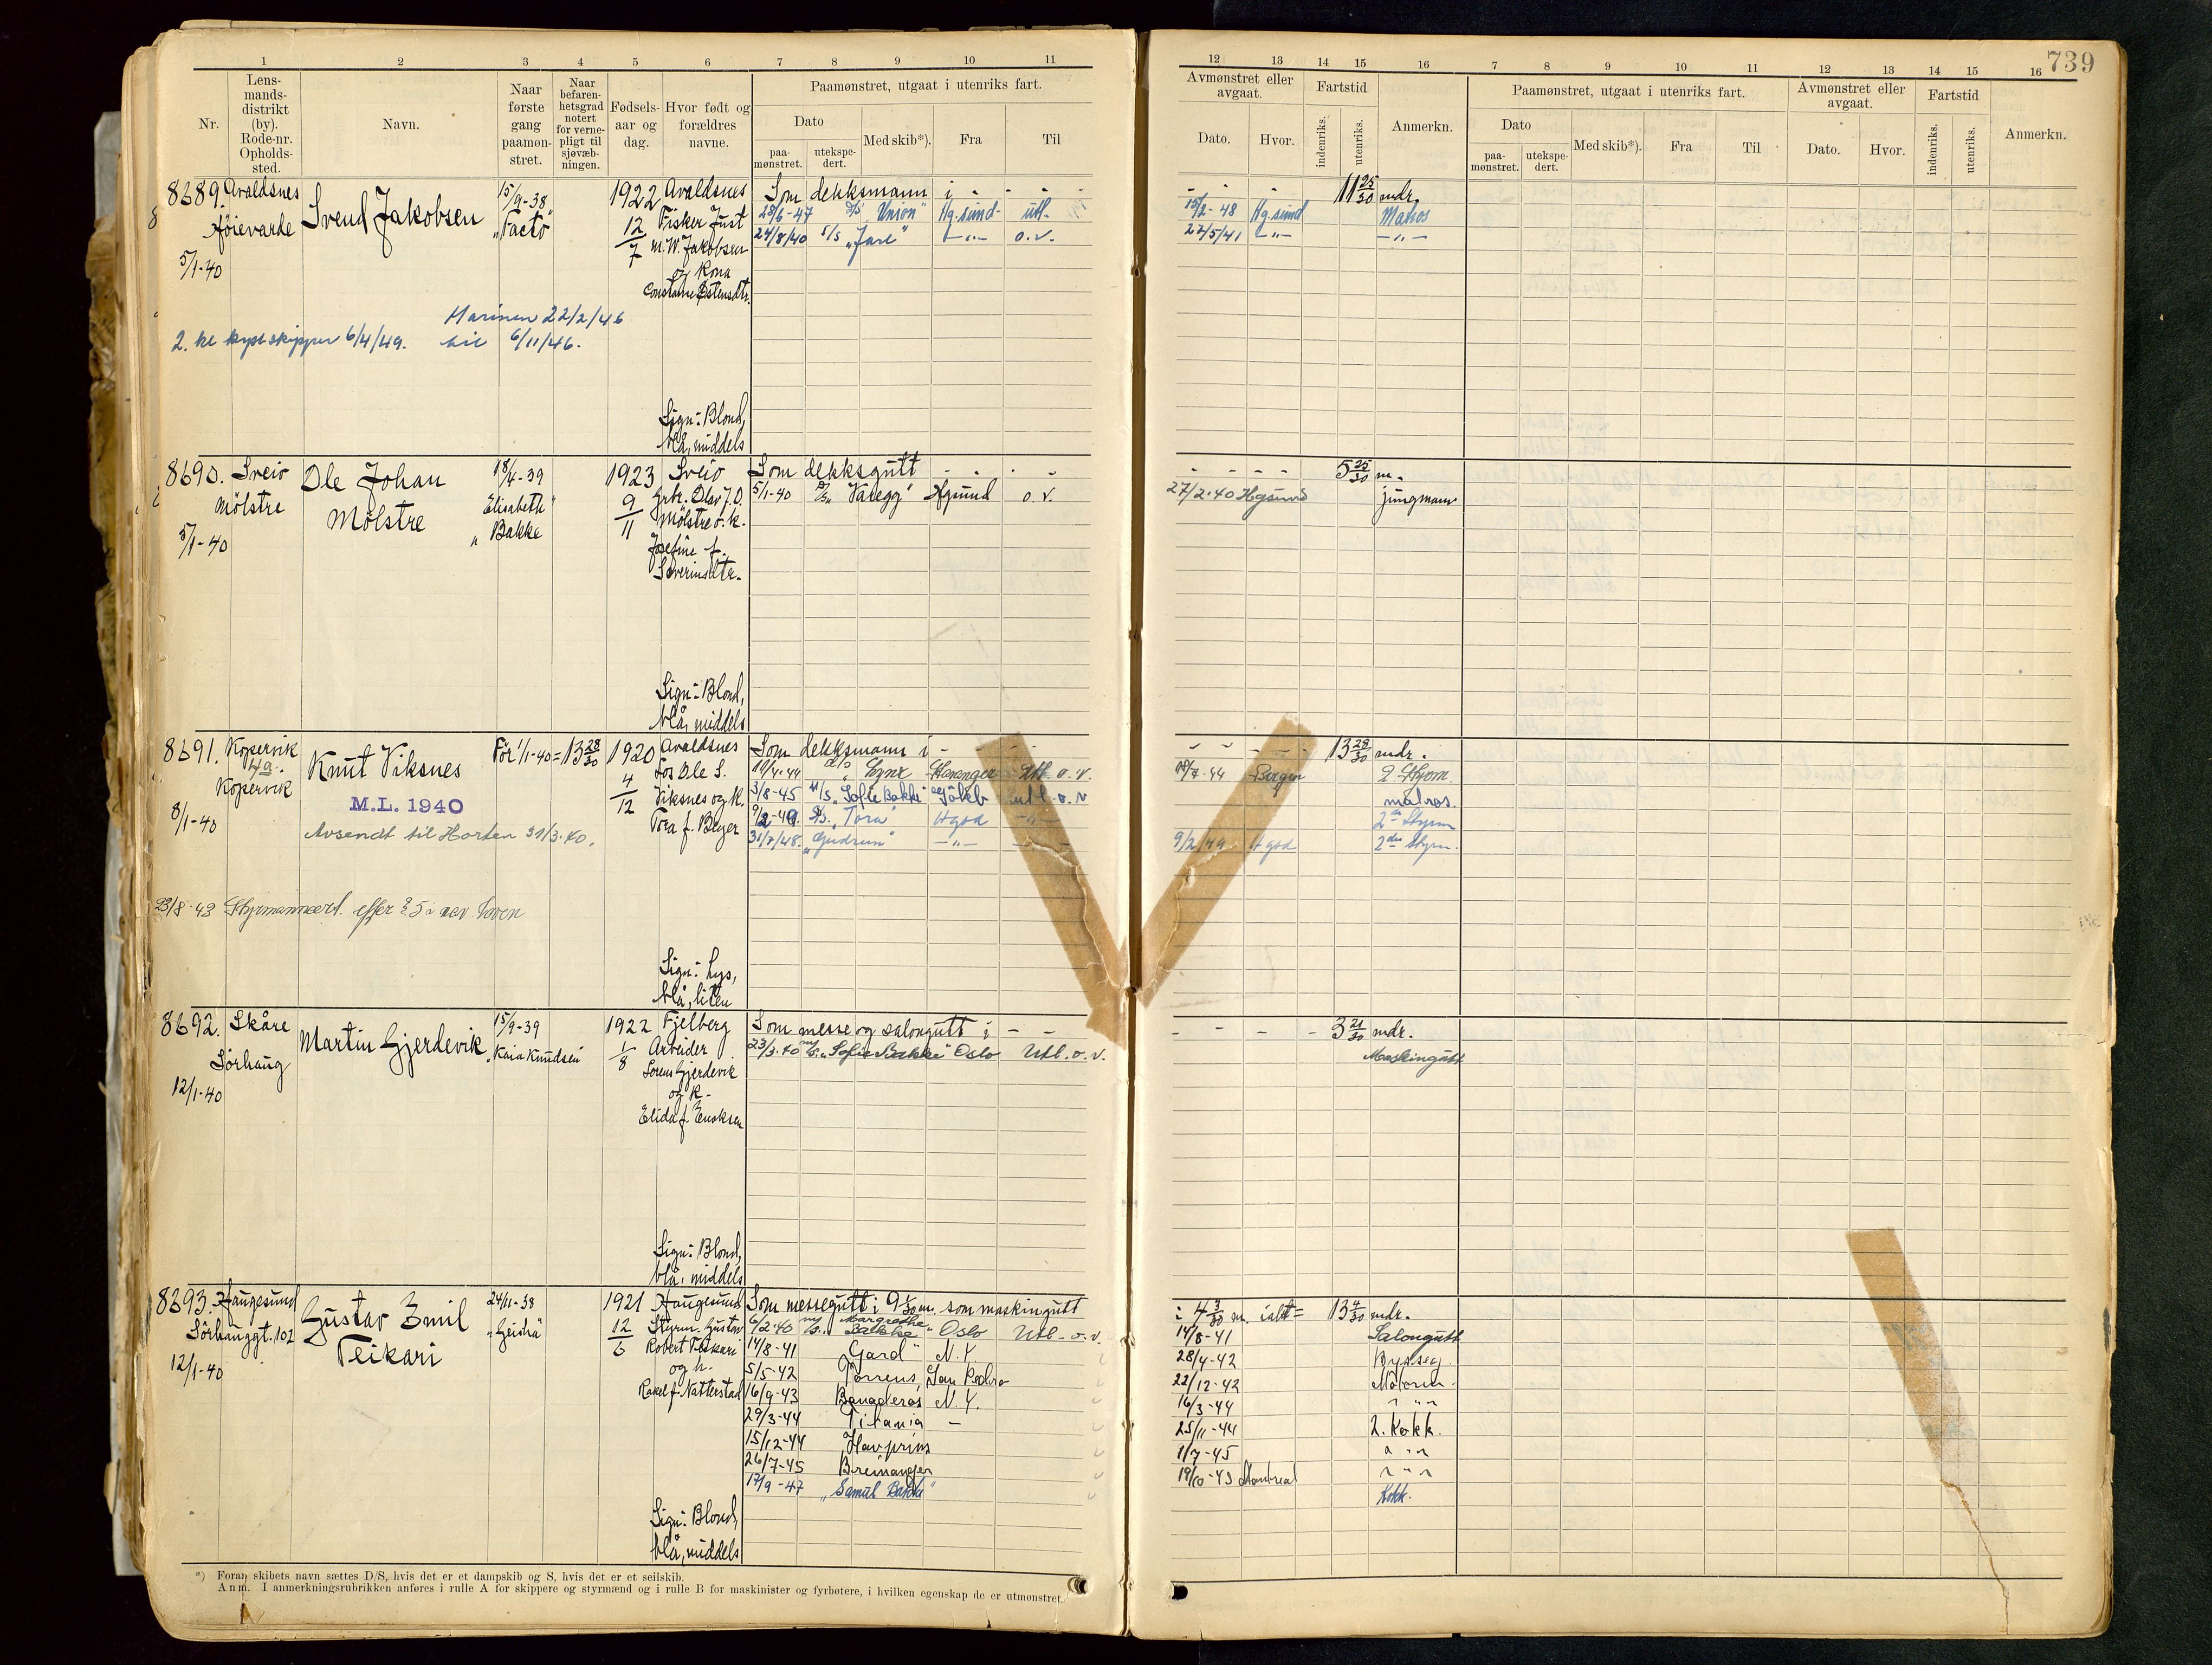 1 2 3 4 5 6 7 8 9 10 11
Nr.
Lens-
mands-
distrikt
(by).
Rode-nr.
Opholds-
sted.
Navn.
Naar
første
gang
paamøn-
stret.
Naar
befaren-
hetsgrad
notert
for verne-
pligt til
sjøvæb-
ningen.
Fødsels-
aar og
dag.
Hvor født og
forældres
navne.
Paamønstret, utgaat i utenriks fart.
Dato
paa-
mønstret.
utekspe-
dert.
Med skib*).
Fra
Til
12 13 14 15 16 7 8 9 10 11 12 13 14 15 16
739
Avmønstret eller
avgaat.
Dato.
Hvor.
Fartstid
indenriks.
utenriks.
Anmerkn.
Paamønstret, utgaat i utenriks fart.
Dato
paa-
mønstret.
utekspe-
dert.
Med skib*).
Fra
Til
Avmønstret eller
avgaat.
Dato.
Hvor.
Fartstid
indenriks.
utenriks.
Anmerkn.
8689. Avaldsnes
Føievarde
5/1-40
Svend Jakobsen
15/9-38
"Facto"
1922
12/7
Avaldsnes
Fisker Just
m. W. Jakobsen
og Kona
Sign: Blond,
blå, middels
Som dekksmann i - - -
28/6-47 D/S "Union" Hg.sund - utl.
24/8/40 S/S "Jarl" -"- o.v.
11 25/30 mdr.
15/2-48 Hg.sund Matros
27/5/41 -"- -"-
Marinen 22/2/46
til 6/11/46.
2. kl kystskipper 6/4/49.
8690. Sveio
Mölstre
5/1-40
Ole Johan
Mölstre
18/4-39
Elisabeth
" Bakke
1923
9/11
Sveio
Grbr. Olav J. O.
Mölstre o. k.
Josefine f.
Severinsdtr.
Sign: Blond,
blå, middels
Som dekksgutt - - - -
5/1-40 "Varegg" Hgsund o. v.
5 25/30 m.
27/2-40 Hgsund jungmann
8691. Kopervik
4a.
Kopervik
8/1-40
Knut Viksnes
M.L. 1940
Avsendt til Horten 31/3.40.
Før 1/1-40=13 28/30
1920
4/12
Avaldsnes
Los Ole S.
Viksnes og k.
Tora f. Bøyer
Sign: Lys,
blå, liten
Som dekksmann i - - -
D/S
Utl. o. v.
3/8-45 M/S "Sofie Bakke" Utl. o. v
"Tora" Hgsd -"-
31/7/48. "Gudrun" -"-
13 28/30 mdr.
Bergen 2. Styrm
matros.
2den Styrm
9/2/49 Hgsd 2den Styrm.
23/8-43 Styrmannsert.
8692. Skåre
Sörhaug
12/1-40
Martin Gjerdevik
15/9-39
"Kaia Knudsen
1922
1/8
Fjelberg
Arbeider
Sörens Gjerdevik
og k.
Elida f. Enoksen
Sign: Blond,
blå, middels
Som messe og salongutt i - -
23/3-40 M/S "Sofie Bakke" Oslo Utl. o. v.
3 21/30 mdr.
Maskingutt
8693. Haugesund
Sörhauggt. 102
12/1-40
Gustav Emil
Teikari
24/11-38
"Geisha"
1921
12/6
Haugesund
Styrm. Gustav
Robert Teikari
og h.
Rakel f. Natterstad
Sign: Blond,
blå, middels
Som messegutt i 9 1/30 m. som maskingutt
i 4 3/30 m. ialt= 13 4/30 mdr.
6/2-40 M/S "Margrethe
Bakke" Oslo Utl. o. v.
14/8-41 Salongutt
14/8-41 "Gard" N. Y
28/4-42 Bysseg.
5/5-42 Torrens, San Pedro
22/12-42 Motorm.
16/9-43 Banaderos N. Y.
16/3-44 " " "
29/3-44 Titania -
25/11-44 2. Kokk.
15/12-44 Havprins
1/7-45 " " "
26/7-45 Breimanger
19/10-45 Montreal " " "
17/9-47 "Samuel Bakke"
Kokk.
*) Foran skibets navn sættes D/S, hvis det er et dampskib og S, hvis det er et seilskib.
Anm. I anmerkningsrubrikken anføres i rulle A for skippere og styrmænd og i rulle B for maskinister og fyrbøtere, i hvilken egenskap de er utmønstret.